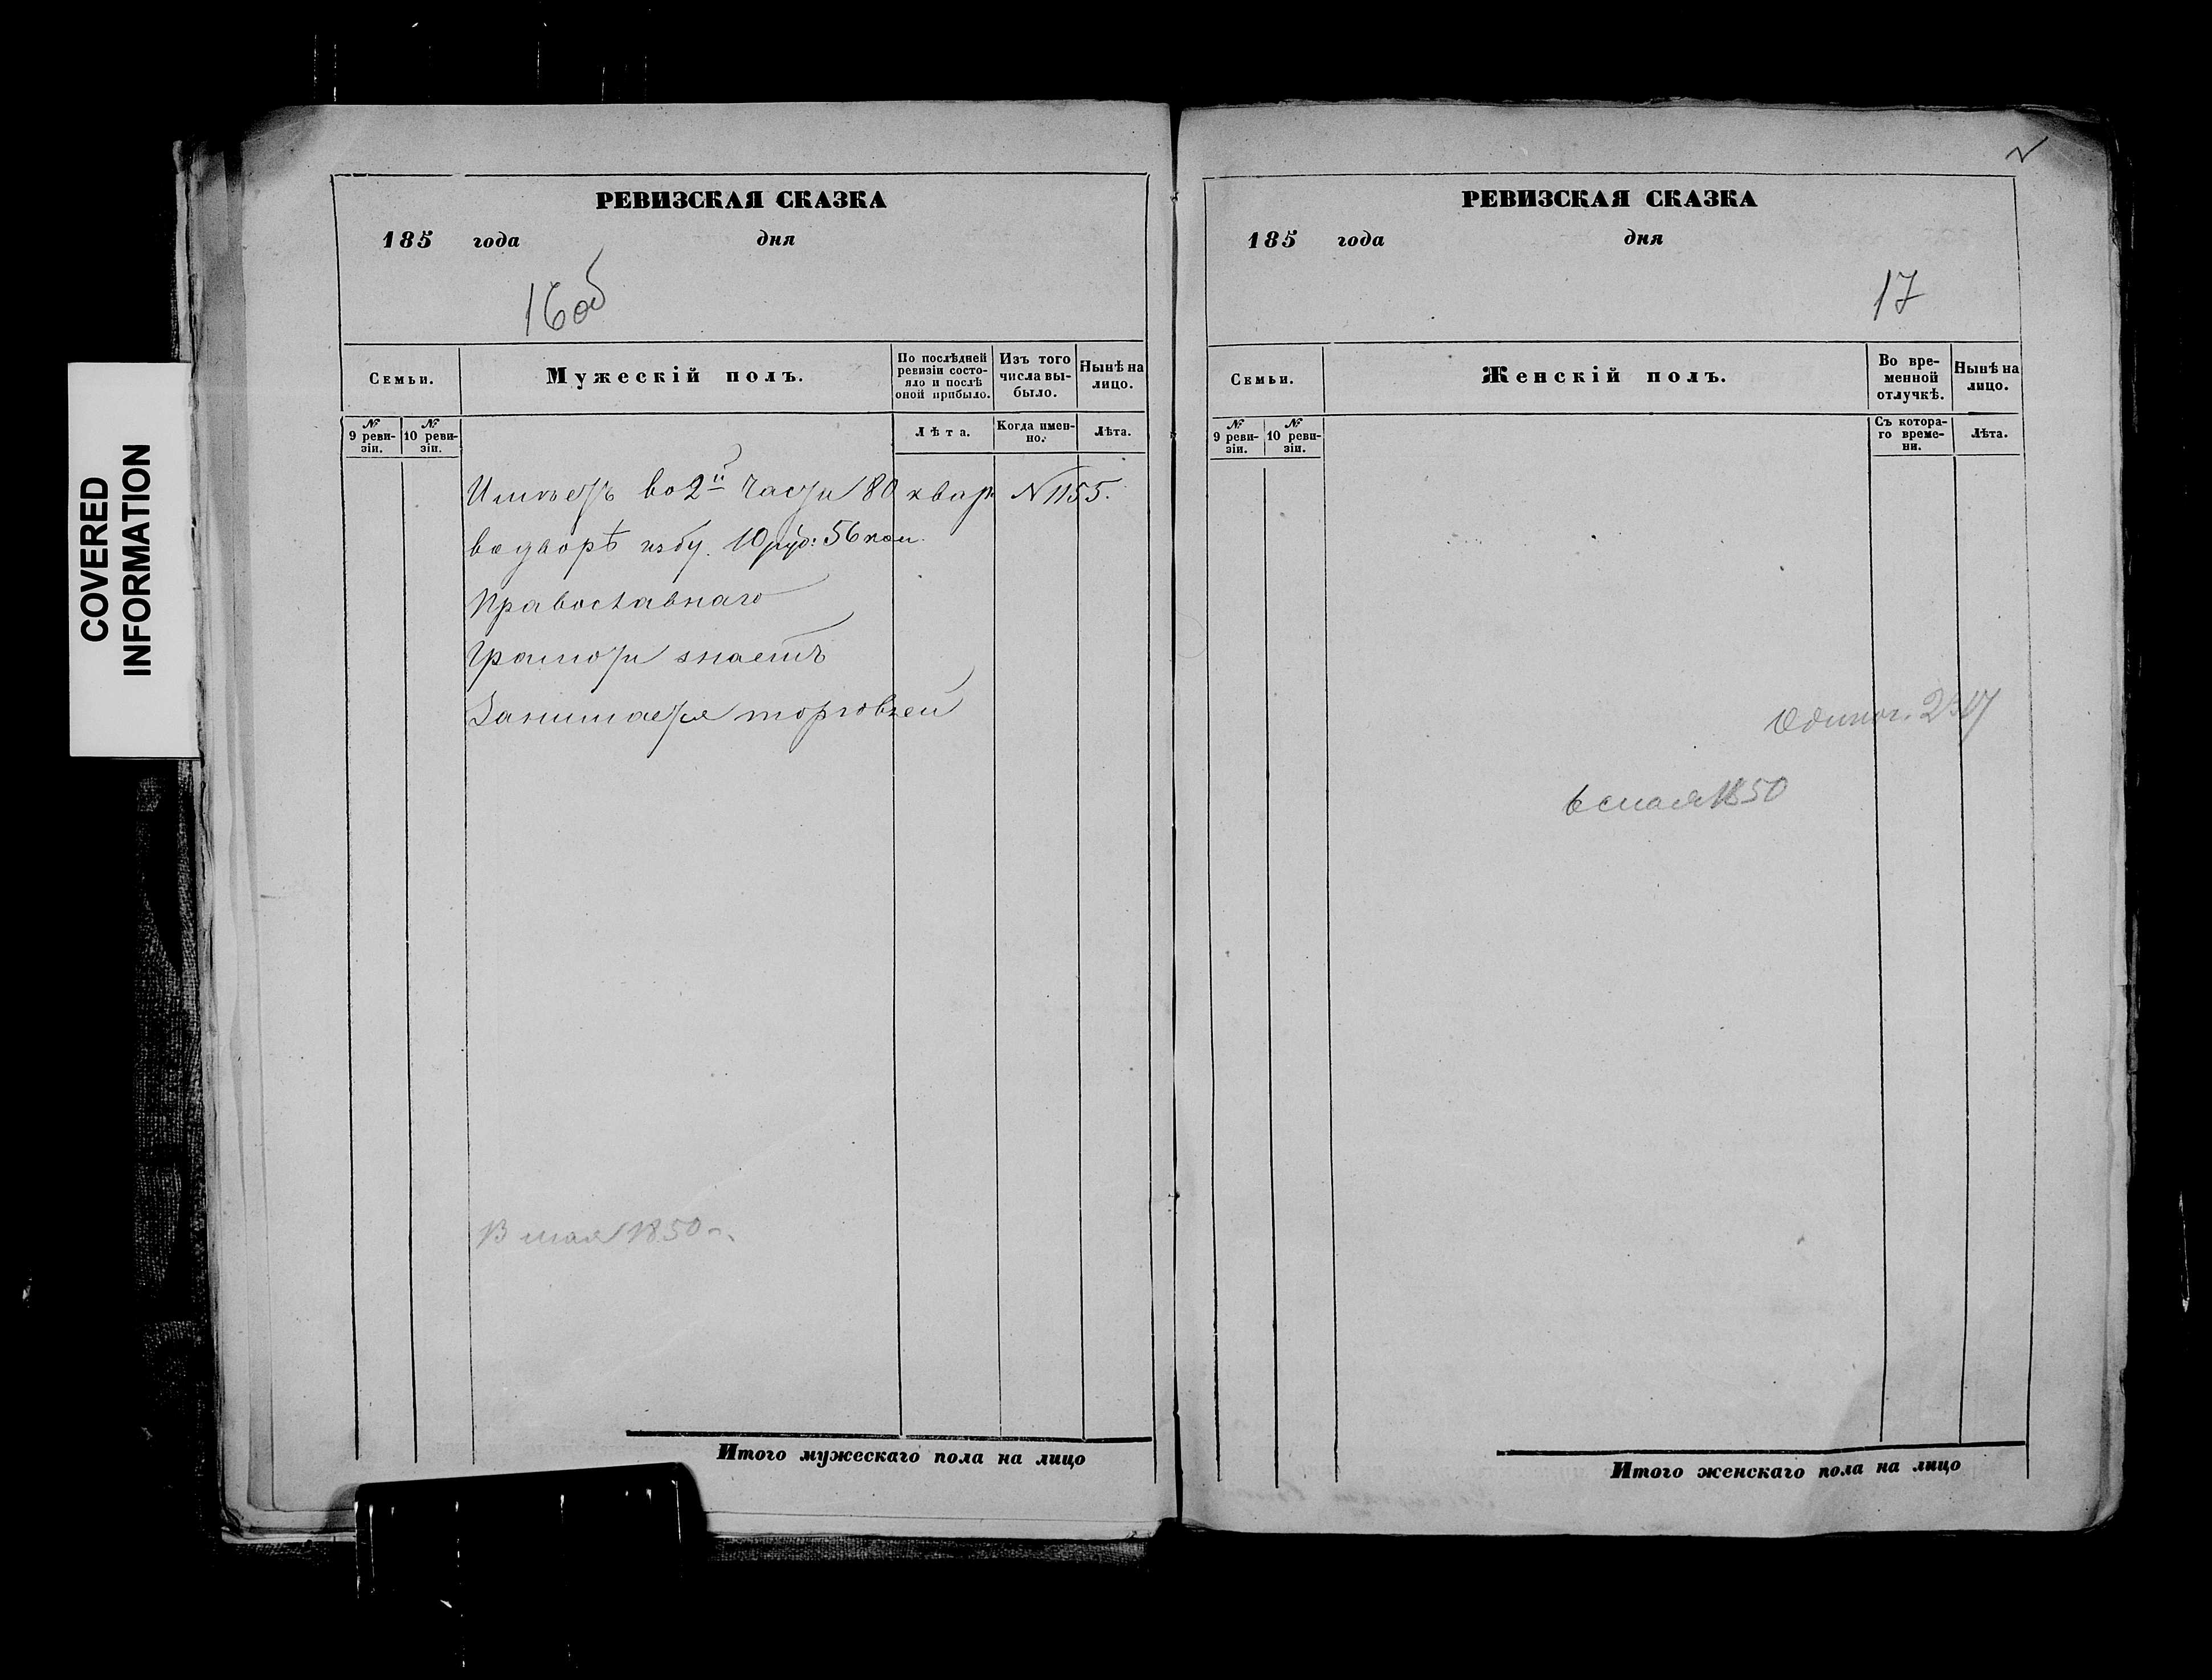 COVERED
INFORMATION
РЕВИЗСКАЯ СКАЗКА
185 года дня
16 об
Семьи.
Мужескій полъ.
По послѣдней ревизіи состояло и послѣ оной прибыло.
Изъ того числа выбыло.
Нынѣ на лицо.
№ 9 ревизіи.
№ 10 ревизіи.
Лѣта.
Когда именно.
Лѣта.
Имѣетъ во 2й части 80 квар № 1155.
водворѣ избу. 10 руб: 56 коп
Православнаго
Грамоти знаетъ
Занимается торговлей
В мая 1850 г.
Итого мужескаго пола на лицо
РЕВИЗСКАЯ СКАЗКА
185 года дня
17
Семьи.
Женскій полъ.
Во временной отлучкѣ.
Нынѣ на лицо.
№ 9 ревизіи.
№ 10 ревизіи.
Съ котораго времени.
Лѣта.
мая 1850
Итого женскаго пола на лицо